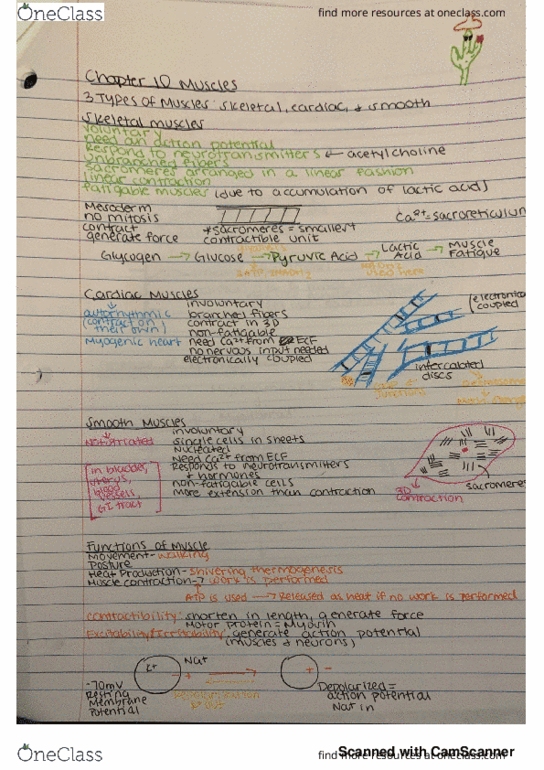 OneClass
find more resources at oneclass.com
Chapter 10 Muscles
3 Types of Muscles: skeletal, cardiac, + smooth
Skeletal muscles
voluntary
need an action potential
Respond to neurotransmitters ← acetylcholine
unbranched fibers
Sacromeres arranged in a linear fashion
linear contraction
fatigable muscles (due to accumulation of lactic acid)
Mesoderm
no mitosis
contract
generate force
*sacromeres = smallest
contractible unit
Ca2+ = sacroreticulum
Glycogen → Glucose → Pyruvic Acid → Lactic Acid → Muscle Fatigue
Cardiac Muscles
autorhythmic
(contract on
their own)
Myogenic heart
involuntary
branched fibers
contract in 3D
non-fatigable
need Ca2+ from ECF
no nervous input needed
electronically coupled
(electronically
coupled
intercalated
discs
Smooth Muscles
Not striated
[in bladder,
uterus,
blood
vessels,
GI tract]
involuntary
single cells in sheets
nucleated
need Ca2+ from ECF
Responds to neurotransmitters
+ hormones
non-fatigable cells
more extension than contraction
3D
contraction
sacromeres
Functions of Muscle
Movement - walking
Posture
Heat Production - shivering thermogenesis
Muscle contraction → work is performed
ATP is used → Released as heat if no work is performed
contractibility: shorten in length, generate force
Motor protein = Myosin
Excitability/Irritability: generate action potential
(muscles + neurons)
K+
Na+
+
+ -
-70mV
Resting
Membrane
Potential
Repolarization
K+ out
Depolarized =
action potential
Na+ in
OneClass
find more resources at oneclass.com
Scanned with CamScanner